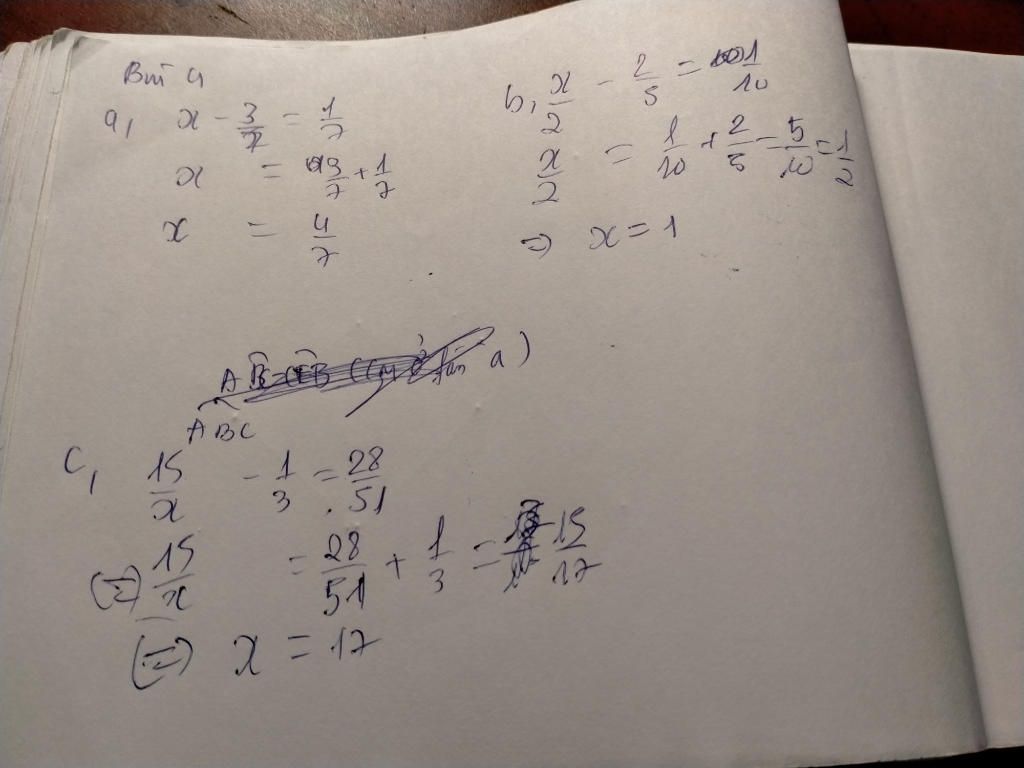 Bài 4
a, x - 3/7 = 1/7
x = 3/7 + 1/7
x = 4/7
b, x/2 - 2/5 = 1/10
x/2 = 1/10 + 2/5 = 5/10 = 1/2
=> x = 1
a)
ABC
c, 15/x - 1/3 = 28/51
(=) 15/x = 28/51 + 1/3 = 15/17
(=) x = 17